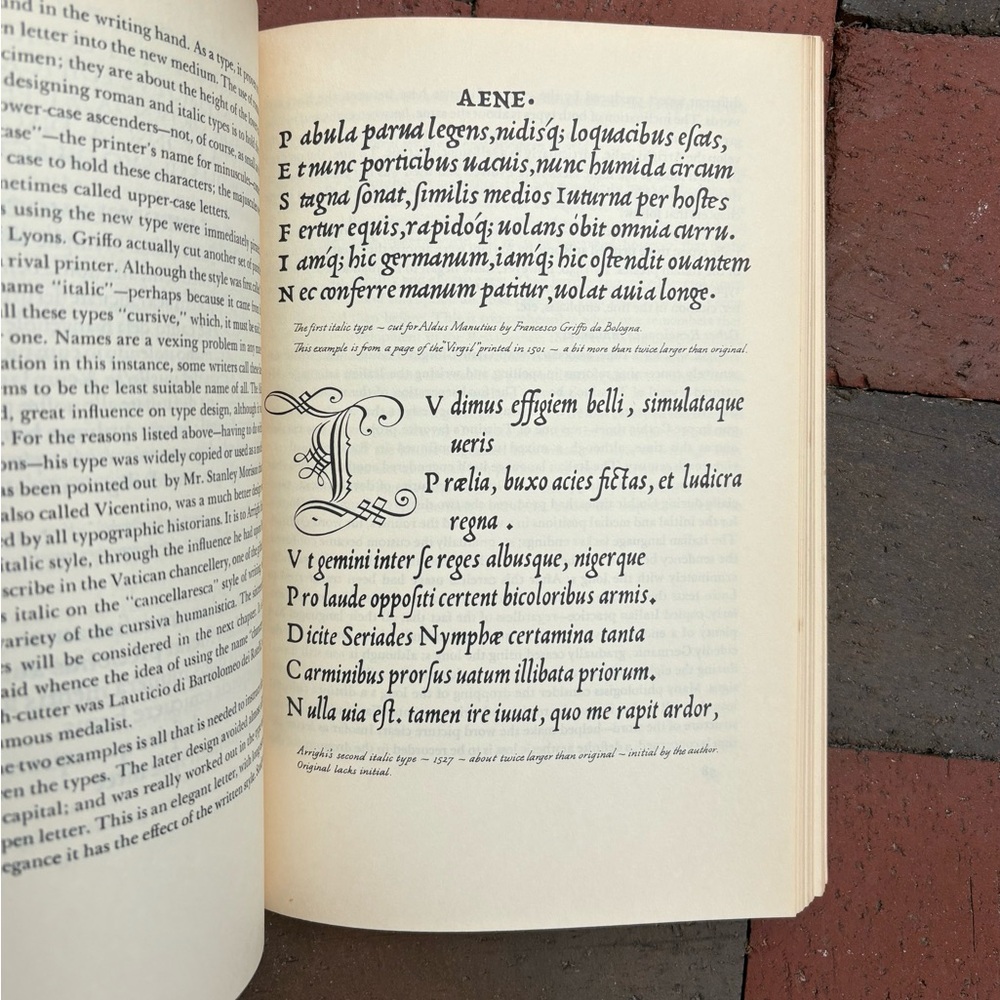 und in the writing hand. As a type, it
n letter into the new medium. The use of
cimen; they are about the height of the
designing roman and italic types is to
ower-case ascenders—not, of course, as
case"—the printer's name for minuscules
case to hold these characters; the
metimes called upper-case letters.
s using the new type were immediately
Lyons. Griffo actually cut another set of
rival printer. Although the style was first
name "italic"—perhaps because it came
ll these types "cursive," which, it must be
one. Names are a vexing problem in any
ation in this instance, some writers call
ms to be the least suitable name of all. The
d, great influence on type design, although
. For the reasons listed above—having to do
ons—his type was widely copied or used as a
as been pointed out by Mr. Stanley Morison
also called Vicentino, was a much better
ed by all typographic historians. It is to Arrighi
italic style, through the influence he had
scribe in the Vatican chancellery, one of the
s italic on the "cancellaresca" style of writing,
variety of the cursiva humanistica. The
es will be considered in the next chapter.
aid whence the idea of using the name
h-cutter was Lauticio di Bartolomeo dei
amous medalist.
e two examples is all that is needed to
en the types. The later design avoided
capital; and was really worked out in the
pen letter. This is an elegant letter, with
egance it has the effect of the written style.
AENE.
P abula parua legens,nidisq́; loquacibus eſcas,
E t nunc porticibus uacuis,nunc humida circum
S tagna ſonat,ſimilis medios Iuturna per hoſtes
F ertur equis,rapidoq́; uolans obit omnia curru.
I amq́; hic germanum,iamq́; hic oſtendit ouantem
N ec conferre manum patitur,uolat auia longe.
The first italic type — cut for Aldus Manutius by Francesco Griffo da Bologna.
This example is from a page of the "Virgil" printed in 1501 — a bit more than twice larger than original.
L V dimus effigiem belli, simulataque
ueris
P rælia, buxo acies fictas, et ludicra
regna .
V t gemini inter ſe reges albusque, nigerque
P ro laude oppoſiti certent bicoloribus armis.
D icite Seriades Nymphæ certamina tanta
C arminibus prorſus uatum illibata priorum.
N ulla uia eſt. tamen ire iuuat, quo me rapit ardor,
Arrighi's second italic type — 1527 — about twice larger than original — initial by the author.
Original lacks initial.